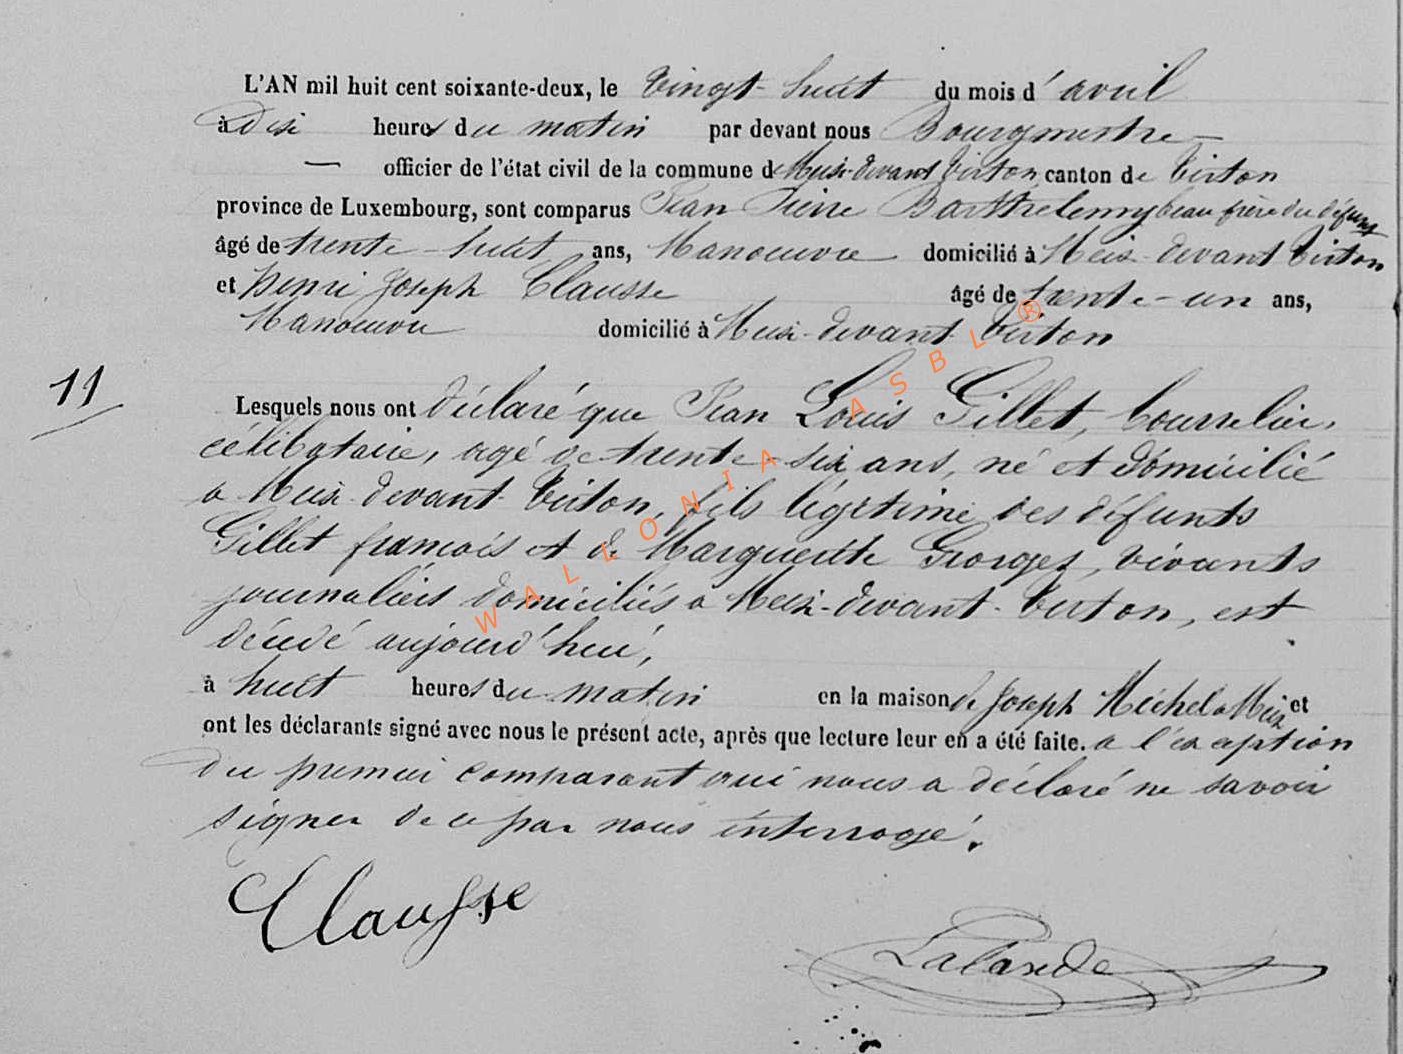 L'AN mil huit cent soixante-deux, le vingt-huit du mois d'avril
à dix heures du matin par devant nous Bourgmestre —
— officier de l'état civil de la commune de Meix-devant Virton canton de Virton
province de Luxembourg, sont comparus Jean Pierre Barthelemy beau frère du défunt
âgé de trente-huit ans, Manoeuvre domicilié à Meix-devant Virton
et Henri Joseph Clausse âgé de trente-un ans,
Manoeuvre domicilié à Meix-devant Virton
11
Lesquels nous ont déclaré que Jean Louis Gillet, bourrelier,
célibataire, agé de trente-six ans, né et domicilié
a Meix-devant-Virton, fils légitime des défunts
Gillet francois et de Marguerite Georges, vivants
journaliers domiciliés a Meix-devant-Virton, est
décédé aujourd'hui,
à huit heures du matin en la maison de Joseph Michel a Meix et
ont les déclarants signé avec nous le présent acte, après que lecture leur en a été faite. a l'exception
du premier comparant qui nous a déclaré ne savoir
signer de ce par nous interrogé.
Clausse
Lalande
WALLONIA ASBL ®